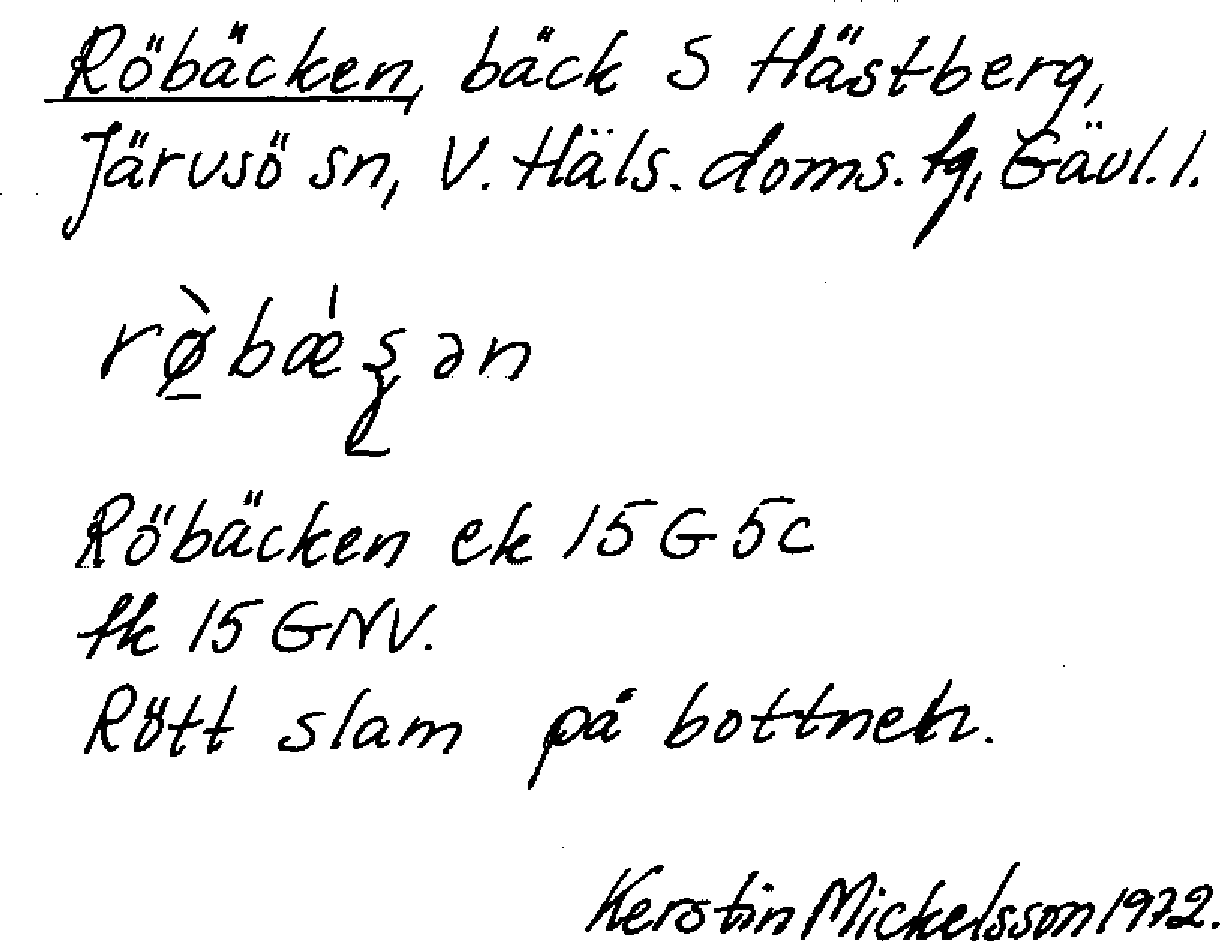 Röbäcken, bäck S Hästberg,
Järvsö sn, V. Häls. doms. fg, Gävl. l.
Röbäcken ek 15 G 5c
fk 15 GNV.
Rött slam på bottnen.
Kerstin Mickelsson 1972.